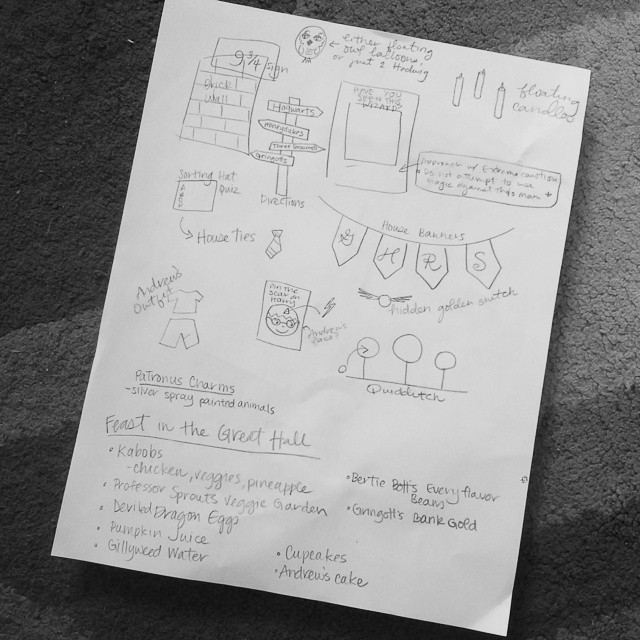 either floating
← owl balloons
or just 1 Hedwig
9 3/4 sign
Brick
Wall
Hogwarts
Honeydukes
Three Broomsticks
Gringotts
Directions
Have you
seen this
wizard
floating
candles
Approach w/ extreme caution
Do not attempt to use
magic against this man
Sorting Hat
Quiz
→ House Ties
House Banners
G H R S
hidden golden snitch
Andrew's
Outfit
Pin the
Scar on
Harry
Andrew's
face?
Quidditch
Patronus Charms
-silver spray painted animals
Feast in the Great Hall
• Kabobs
-chicken, veggies, pineapple
• Professor Sprouts Veggie Garden
• Devil'd Dragon Eggs
• Pumpkin Juice
• Gillyweed Water
• Bertie Bott's Every flavor
Beans
• Gringott's Bank Gold
• Cupcakes
• Andrew's cake